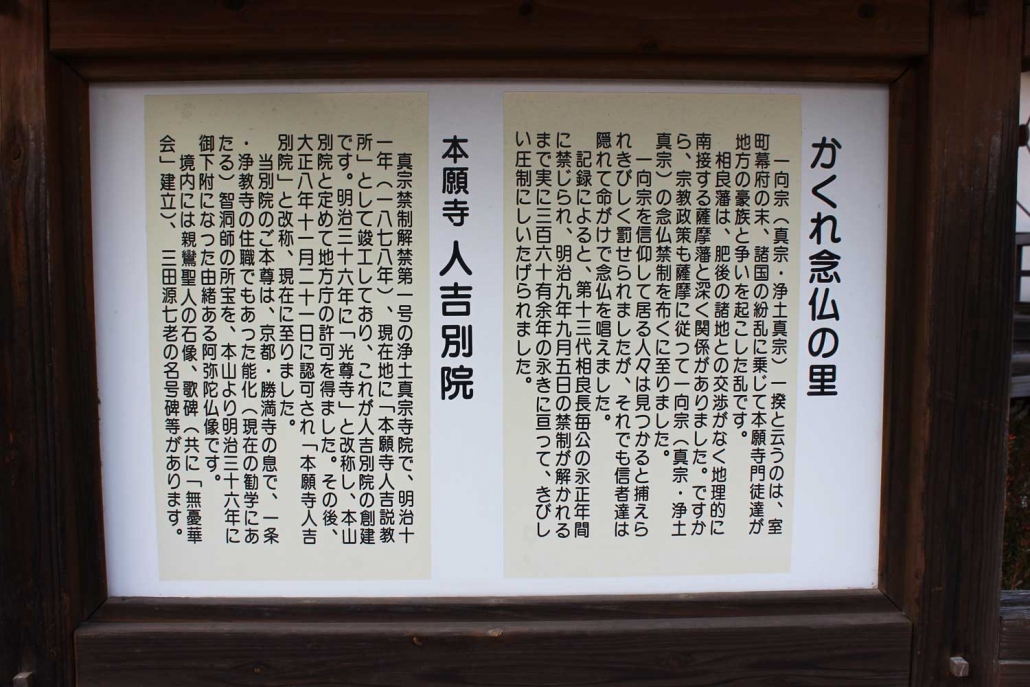 かくれ念仏の里
一向宗（真宗・浄土真宗）一揆と云うのは、室
町幕府の末、諸国の紛乱に乗じて本願寺門徒達が
地方の豪族と争いを起こした乱です。
相良藩は、肥後の諸地との交渉がなく地理的に
南接する薩摩藩と深く関係がありました。ですか
ら、宗教政策も薩摩に従つて一向宗（真宗・浄土
真宗）の念仏禁制を布くに至りました。
一向宗を信仰して居る人々は見つかると捕えら
れきびしく罰せられましたが、それでも信者達は
隠れて命がけで念仏を唱えました。
記録によると、第十三代相良長毎公の永正年間
に禁じられ、明治九年九月五日の禁制が解かれる
まで実に三百六十有余年の永きに亘つて、きびし
い圧制にしいたげられました。
本願寺 人吉別院
真宗禁制解禁第一号の浄土真宗寺院で、明治十
一年（一八七八年）、現在地に「本願寺人吉説教
所」として竣工しており、これが人吉別院の創建
です。明治三十六年に「光尊寺」と改称し、本山
別院と定めて地方庁の許可を得ました。その後、
大正八年十一月二十一日に認可され「本願寺人吉
別院」と改称、現在に至りました。
当別院のご本尊は、京都・勝満寺の息で、一条
・浄教寺の住職でもあった能化（現在の勧学にあ
たる）智洞師の所宝を、本山より明治三十六年に
御下附になった由緒ある阿弥陀仏像です。
境内には親鸞聖人の石像、歌碑（共に「無憂華
会」建立）、三田源七老の名号碑等があります。